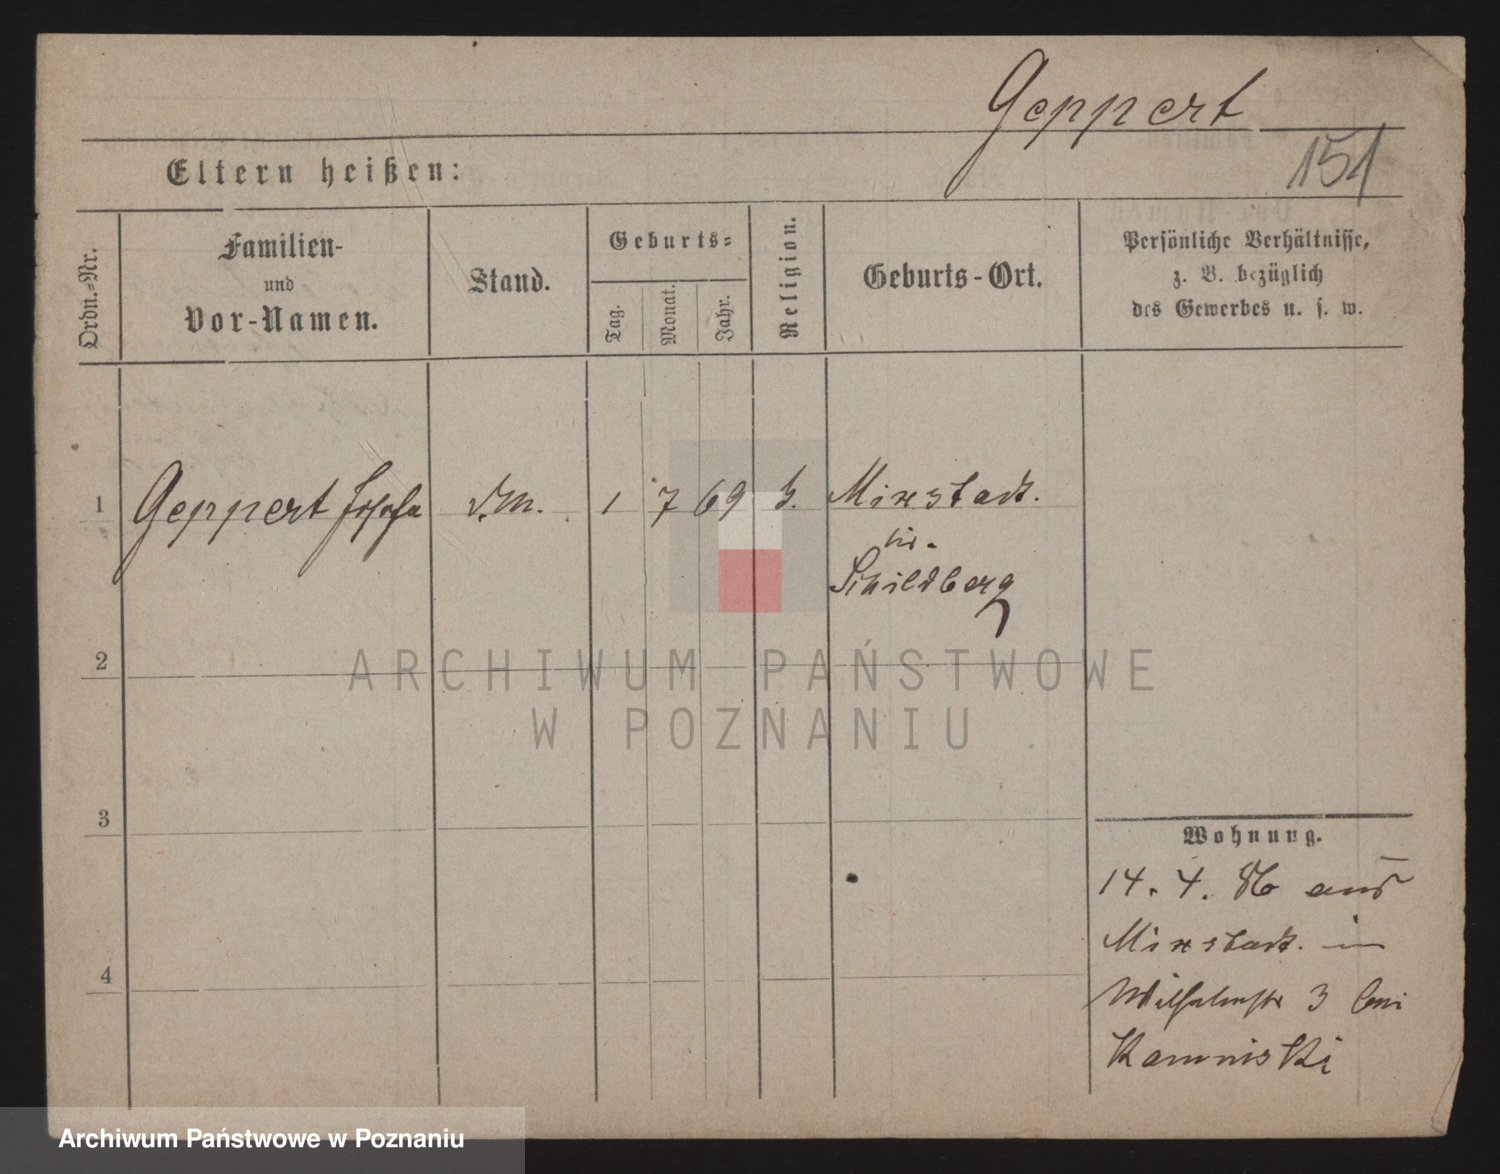 Geppert
151
Eltern heißen:
Ordn.-Nr.
Familien-
und
Vor-Namen.
Stand.
Geburts-
Tag.
Monat.
Jahr.
Religion.
Geburts-Ort.
Persönliche Verhältnisse,
z. B. bezüglich
des Gewerbes u. s. w.
1 Geppert d. M. 1 7 69 Mixstadt.
Schildberg
2
ARCHIWUM PAŃSTWOWE
W POZNANIU
3
Wohnung.
14. 4. 86 aus
Mixstadt. in
4
Wilhelmstr 3 bei
Kaminski
Archiwum Państwowe w Poznaniu